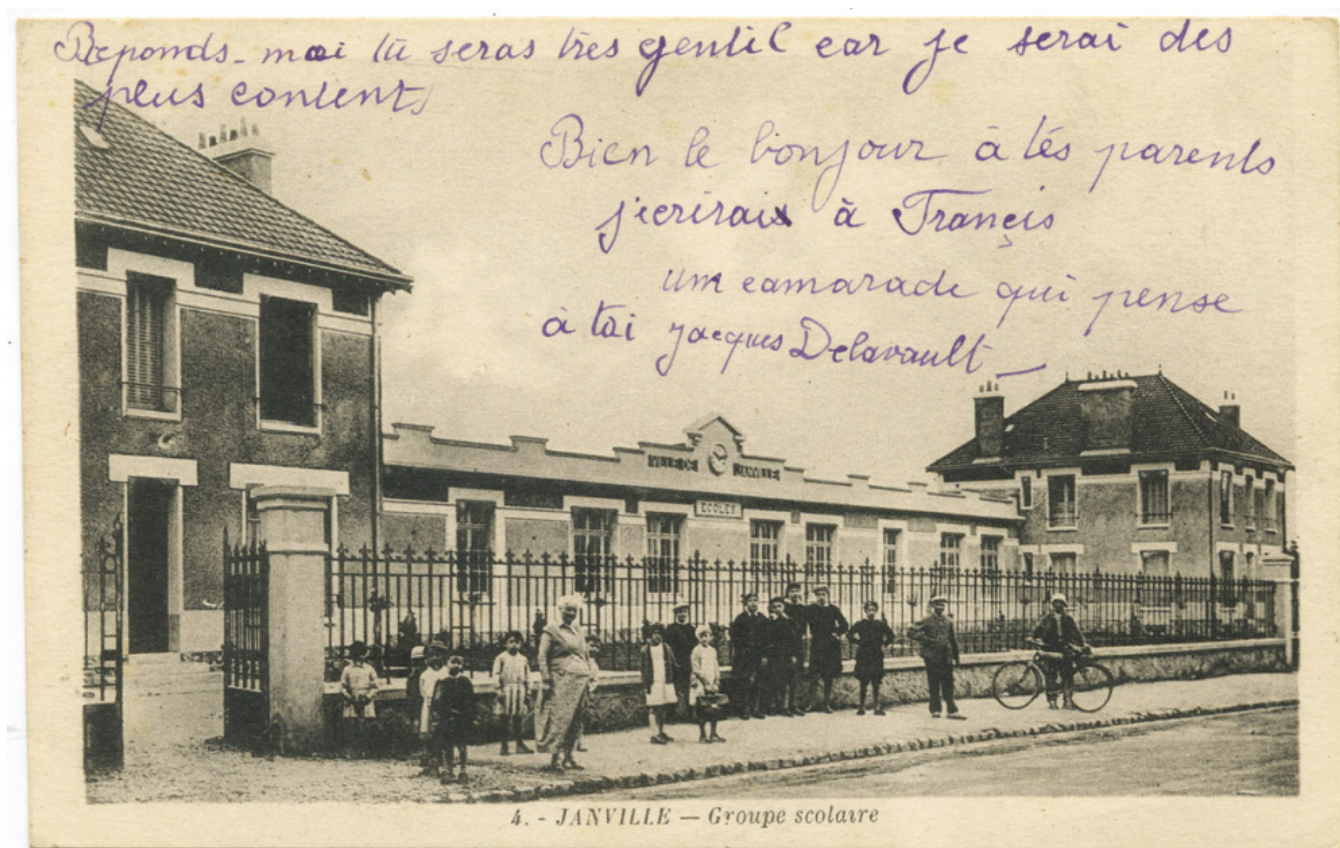 Reponds-moi tu seras très gentil car je serai des
plus content
Bien le bonjour à tes parents
j'ecrirais à Françis
um camarade qui pense
à toi jacques Delavault —
VILLE DE JANVILLE
ECOLES
4. - JANVILLE — Groupe scolaire